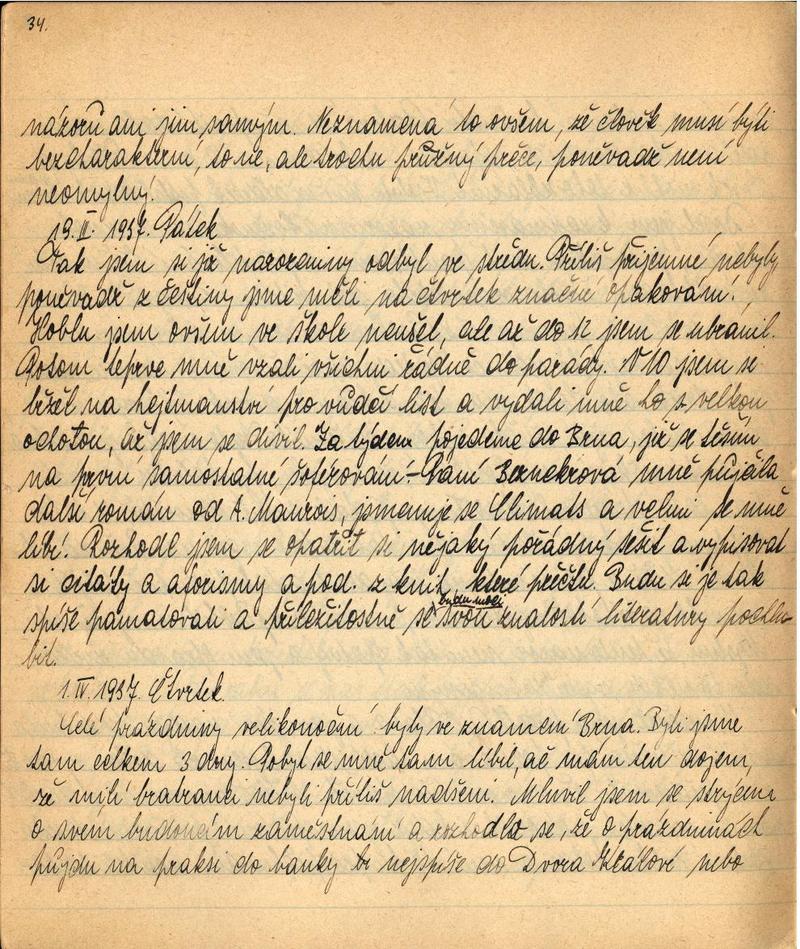 34.
názorů ani jim samým. Neznamená to ovšem, že člověk musí býti
bezcharakterní, to ne, ale trochu pružný přece, poněvadž není
neomylný.
19. II. 1937. Pátek
Tak jsem si již narozeniny odbyl ve středu. Příliš příjemné nebyly
poněvadž z češtiny jsme měli na čtvrtek značné opakování.
Hoblu jsem ovšem ve škole neušel, ale až do 12 jsem se ubránil.
Potom teprve mně vzali všichni řádně do parády. V 10 jsem se
běžel na hejtmanství pro vůdčí list a vydali mně ho s velkou
ochotou, až jsem se divil. Za týden pojedeme do Brna, již se těším
na první samostatné šoférování – Paní Bernekrová mně půjčila
další román od A. Maurois, jmenuje se Climats a velmi se mně
líbí. Rozhodl jsem se opatřit si nějaký pořádný sešit a vypisovat
si citáty a aforismy a pod. z knih, které přečtu. Budu si je tak
spíše pamatovati a příležitostně se budu moci svou znalostí literatury pochlu-
bit.
1. IV. 1937. Čtvrtek
Celé prázdniny velikonoční byly ve znamení Brna. Byli jsme
tam celkem 3 dny. Pobyt se mně tam líbil, ač mám ten dojem,
že milí bratranci nebyli příliš nadšeni. Mluvil jsem se strýcem
o svém budoucím zaměstnání a rozhodlo se, že o prázdninách
půjdu na praksi do banky nejspíše do Dvora Králové nebo